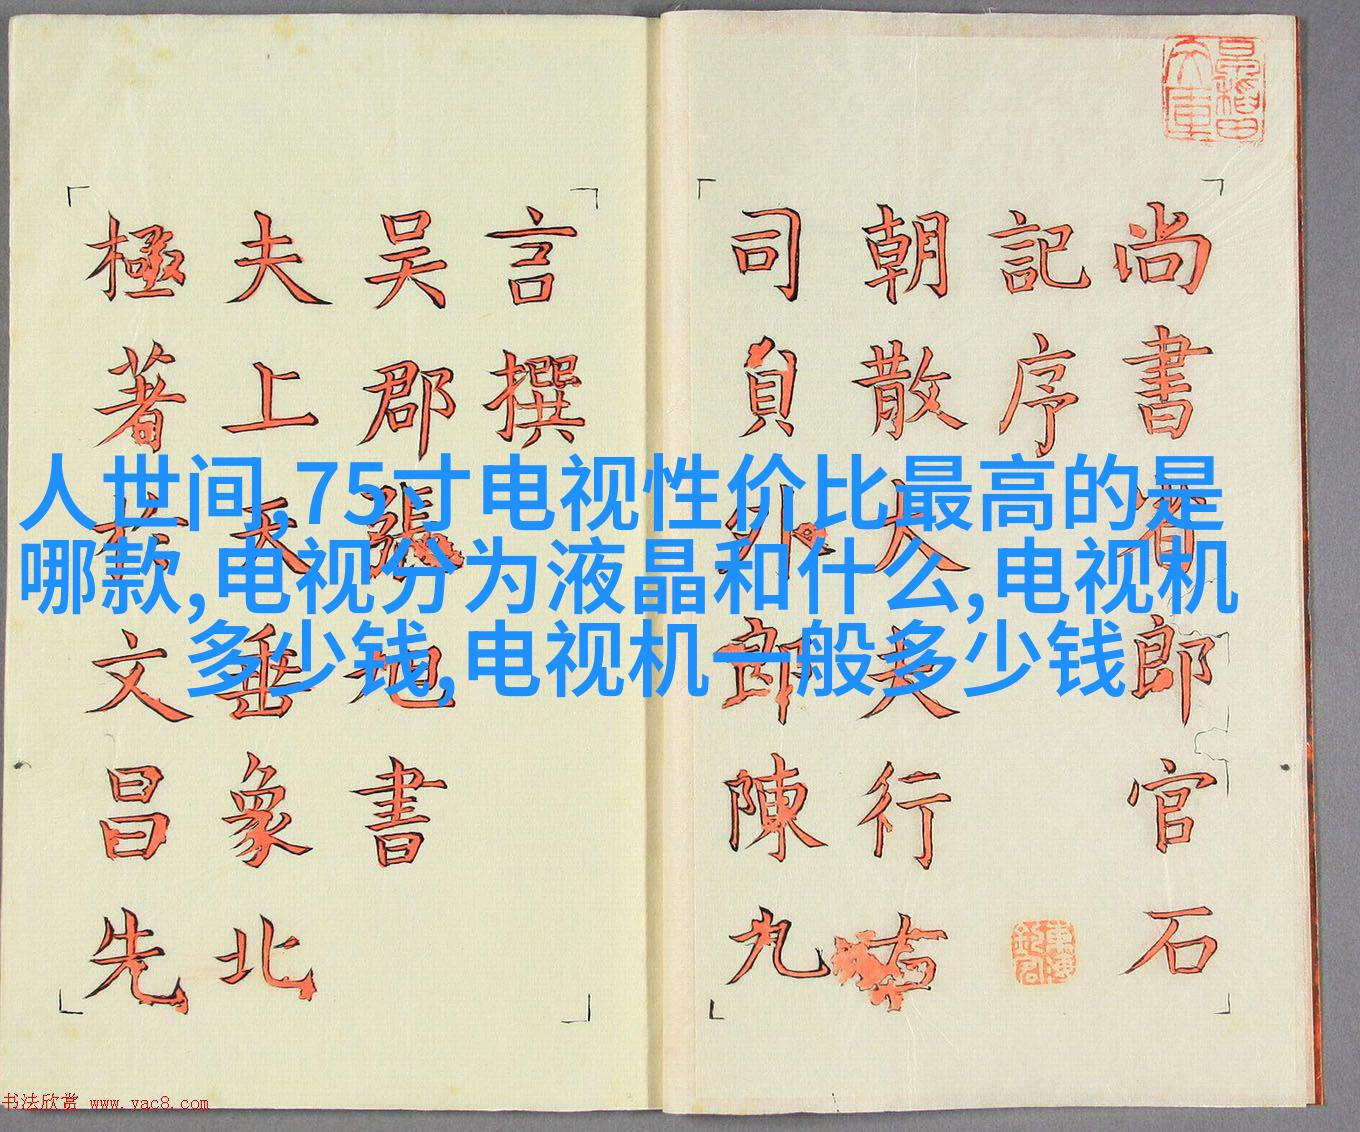 尚書省郎官石
記序
朝散大夫行右
司負外郎陳九
言撰
吴郡張旭書
夫上天垂象北
極著於文昌先
人世间,75寸电视性价比最高的是
哪款,电视分为液晶和什么,电视机
多少钱,电视机一般多少钱
书法欣赏 www.yac8.com